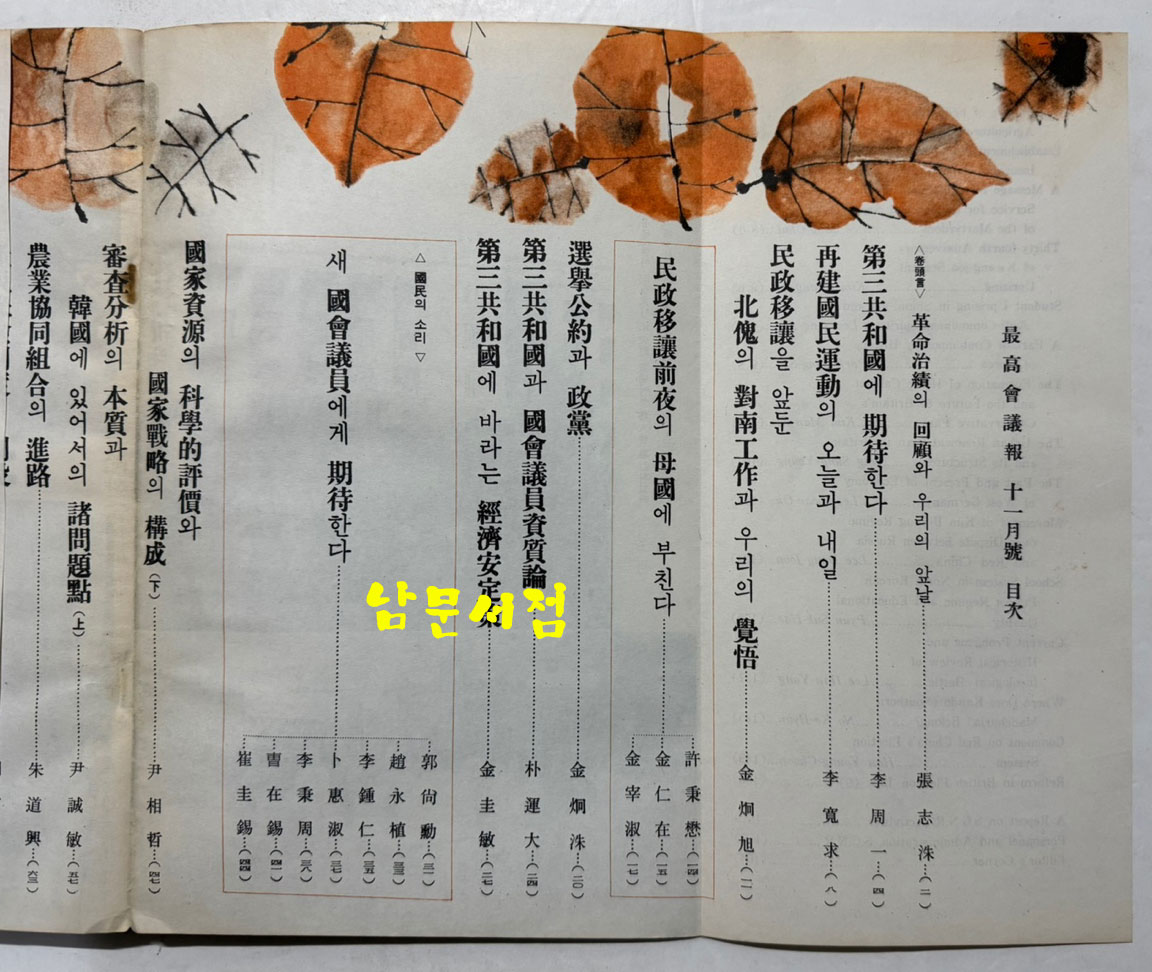 最高會議報 十一月號 目次
△卷頭言▽ 革命治績의 回顧와 우리의 앞날……張志洙…(二)
第三共和國에 期待한다……李周一…(四)
再建國民運動의 오늘과 내일……李寬求…(八)
民政移讓을 앞둔
北傀의 對南工作과 우리의 覺悟……金炯旭…(一一)
民政移讓前夜의 母國에 부친다……
許秉懋…(一四)
金仁在…(一五)
金宰淑…(一七)
選擧公約과 政黨……金炯洙…(二〇)
第三共和國과 國會議員資質論……朴運大…(二四)
第三共和國에 바라는 經濟安定策……金圭敏…(二七)
△ 國民의 소리 ▽
새 國會議員에게 期待한다……
郭尙勳…(三一)
趙永植…(三三)
李鍾仁…(三五)
卜惠淑…(三七)
李秉周…(三八)
曺在錫…(四一)
崔圭錫…(四四)
國家資源의 科學的評價와
國家戰略의 構成(下)……尹相哲…(四七)
審査分析의 本質과
韓國에 있어서의 諸問題點(上)……尹誠敏…(五七)
農業協同組合의 進路……朱道興…(六三)
남문서점